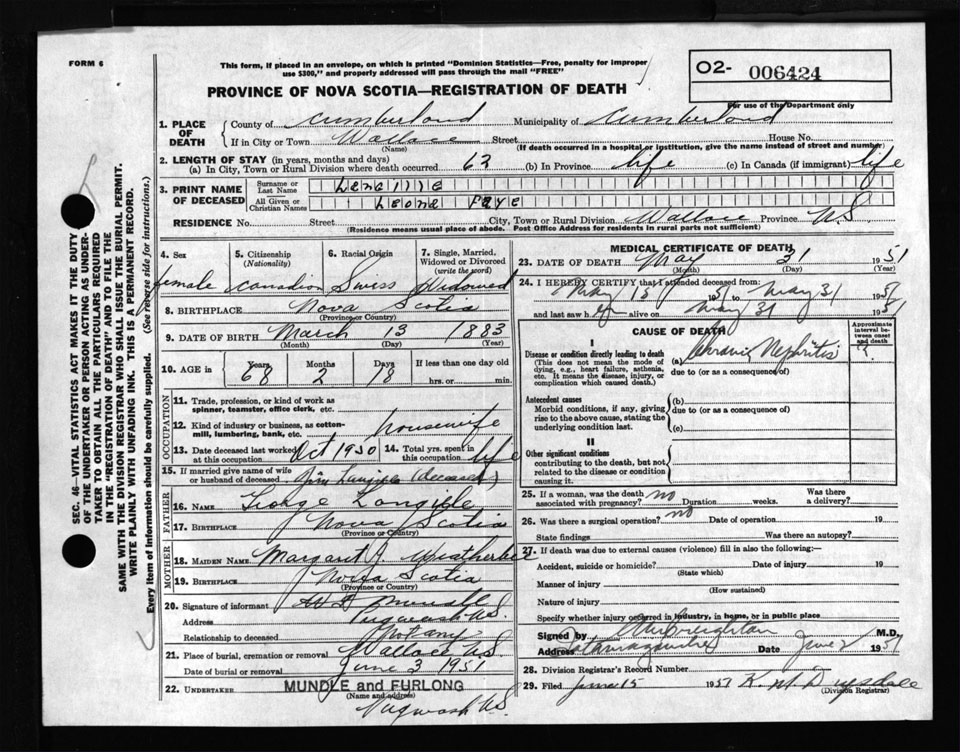 FORM 6
This form, if placed in an envelope, on which is printed "Dominion Statistics—Free, penalty for improper
use $300," and properly addressed will pass through the mail "FREE"
O2- 006424
For use of the Department only
PROVINCE OF NOVA SCOTIA—REGISTRATION OF DEATH
1. PLACE OF DEATH County of Cumberland Municipality of Cumberland
If in City or Town Wallace Street House No.
(Name) (If death occurred in a hospital or institution, give name instead of street and number)
2. LENGTH OF STAY (in years, months and days)
(a) In City, Town or Rural Division where death occurred 62 (b) In Province life (c) In Canada (if immigrant) life
3. PRINT NAME OF DECEASED Surname or Last Name
All Given or Christian Names Leona Faye
RESIDENCE No. Street City, Town or Rural Division Wallace Province N.S.
(Residence means usual place of abode. Post Office Address for residents in rural parts not sufficient)
4. Sex female
5. Citizenship (Nationality) Canadian
6. Racial Origin Swiss
7. Single, Married, Widowed or Divorced (write the word) Widowed
8. BIRTHPLACE Nova Scotia
(Province or Country)
9. DATE OF BIRTH March 13 1883
(Month) (Day) (Year)
10. AGE in Years 68 Months 2 Days 18 If less than one day old
hrs. or min.
OCCUPATION
11. Trade, profession, or kind of work as
spinner, teamster, office clerk, etc.
12. Kind of industry or business, as cotton-
mill, lumbering, bank, etc. housewife
13. Date deceased last worked at this occupation Oct 1950 14. Total yrs. spent in this occupation life
15. If married give name of wife
or husband of deceased Jim (deceased)
FATHER
16. NAME George Langille
17. BIRTHPLACE Nova Scotia
(Province or Country)
MOTHER
18. MAIDEN NAME Margaret J. Weatherbie
19. BIRTHPLACE Nova Scotia
(Province or Country)
20. Signature of informant
Address Pugwash N.S.
Relationship to deceased Not any
21. Place of burial, cremation or removal Wallace N.S.
Date of burial or removal June 3 1951
22. UNDERTAKER MUNDLE and FURLONG
(Name and address)
Pugwash N.S.
MEDICAL CERTIFICATE OF DEATH
23. DATE OF DEATH May 31 1951
(Month) (Day) (Year)
24. I HEREBY CERTIFY that I attended deceased from:
May 31 195
and last saw h alive on May 31 1951
CAUSE OF DEATH
Approximate interval between onset and death
I
Disease or condition directly leading to death (a) Chronic Nephritis ?
(This does not mean the mode of dying, e.g., heart failure, asthenia, etc. It means the disease, injury, or complication which caused death.)
due to (or as a consequence of)
Antecedent causes (b)
Morbid conditions, if any, giving rise to the above cause, stating the underlying condition last.
due to (or as a consequence of)
(c)
II
Other significant conditions
contributing to the death, but not related to the disease or condition causing it.
25. If a woman, was the death associated with pregnancy? no Duration weeks. Was there a delivery?
26. Was there a surgical operation? no Date of operation 19
State findings Was there an autopsy?
27. If death was due to external causes (violence) fill in also the following:—
Accident, suicide or homicide? Date of injury 19
(State which)
Manner of injury
(How sustained)
Nature of injury
Specify whether injury occurred in industry, in home, or in public place
Signed by Creighton M.D.
Address Tatamagouche Date June 2 1951
28. Division Registrar's Record Number
29. Filed June 15 1951 K. M. Drysdale
(Division Registrar)
SEC. 46—VITAL STATISTICS ACT MAKES IT THE DUTY
OF THE UNDERTAKER OR PERSON ACTING AS UNDER-
TAKER TO OBTAIN ALL THE PARTICULARS REQUIRED
IN THE "REGISTRATION OF DEATH" AND TO FILE THE
SAME WITH THE DIVISION REGISTRAR WHO SHALL ISSUE THE BURIAL PERMIT.
WRITE PLAINLY WITH UNFADING INK. THIS IS A PERMANENT RECORD.
Every item of information should be carefully supplied. (See reverse side for instructions.)